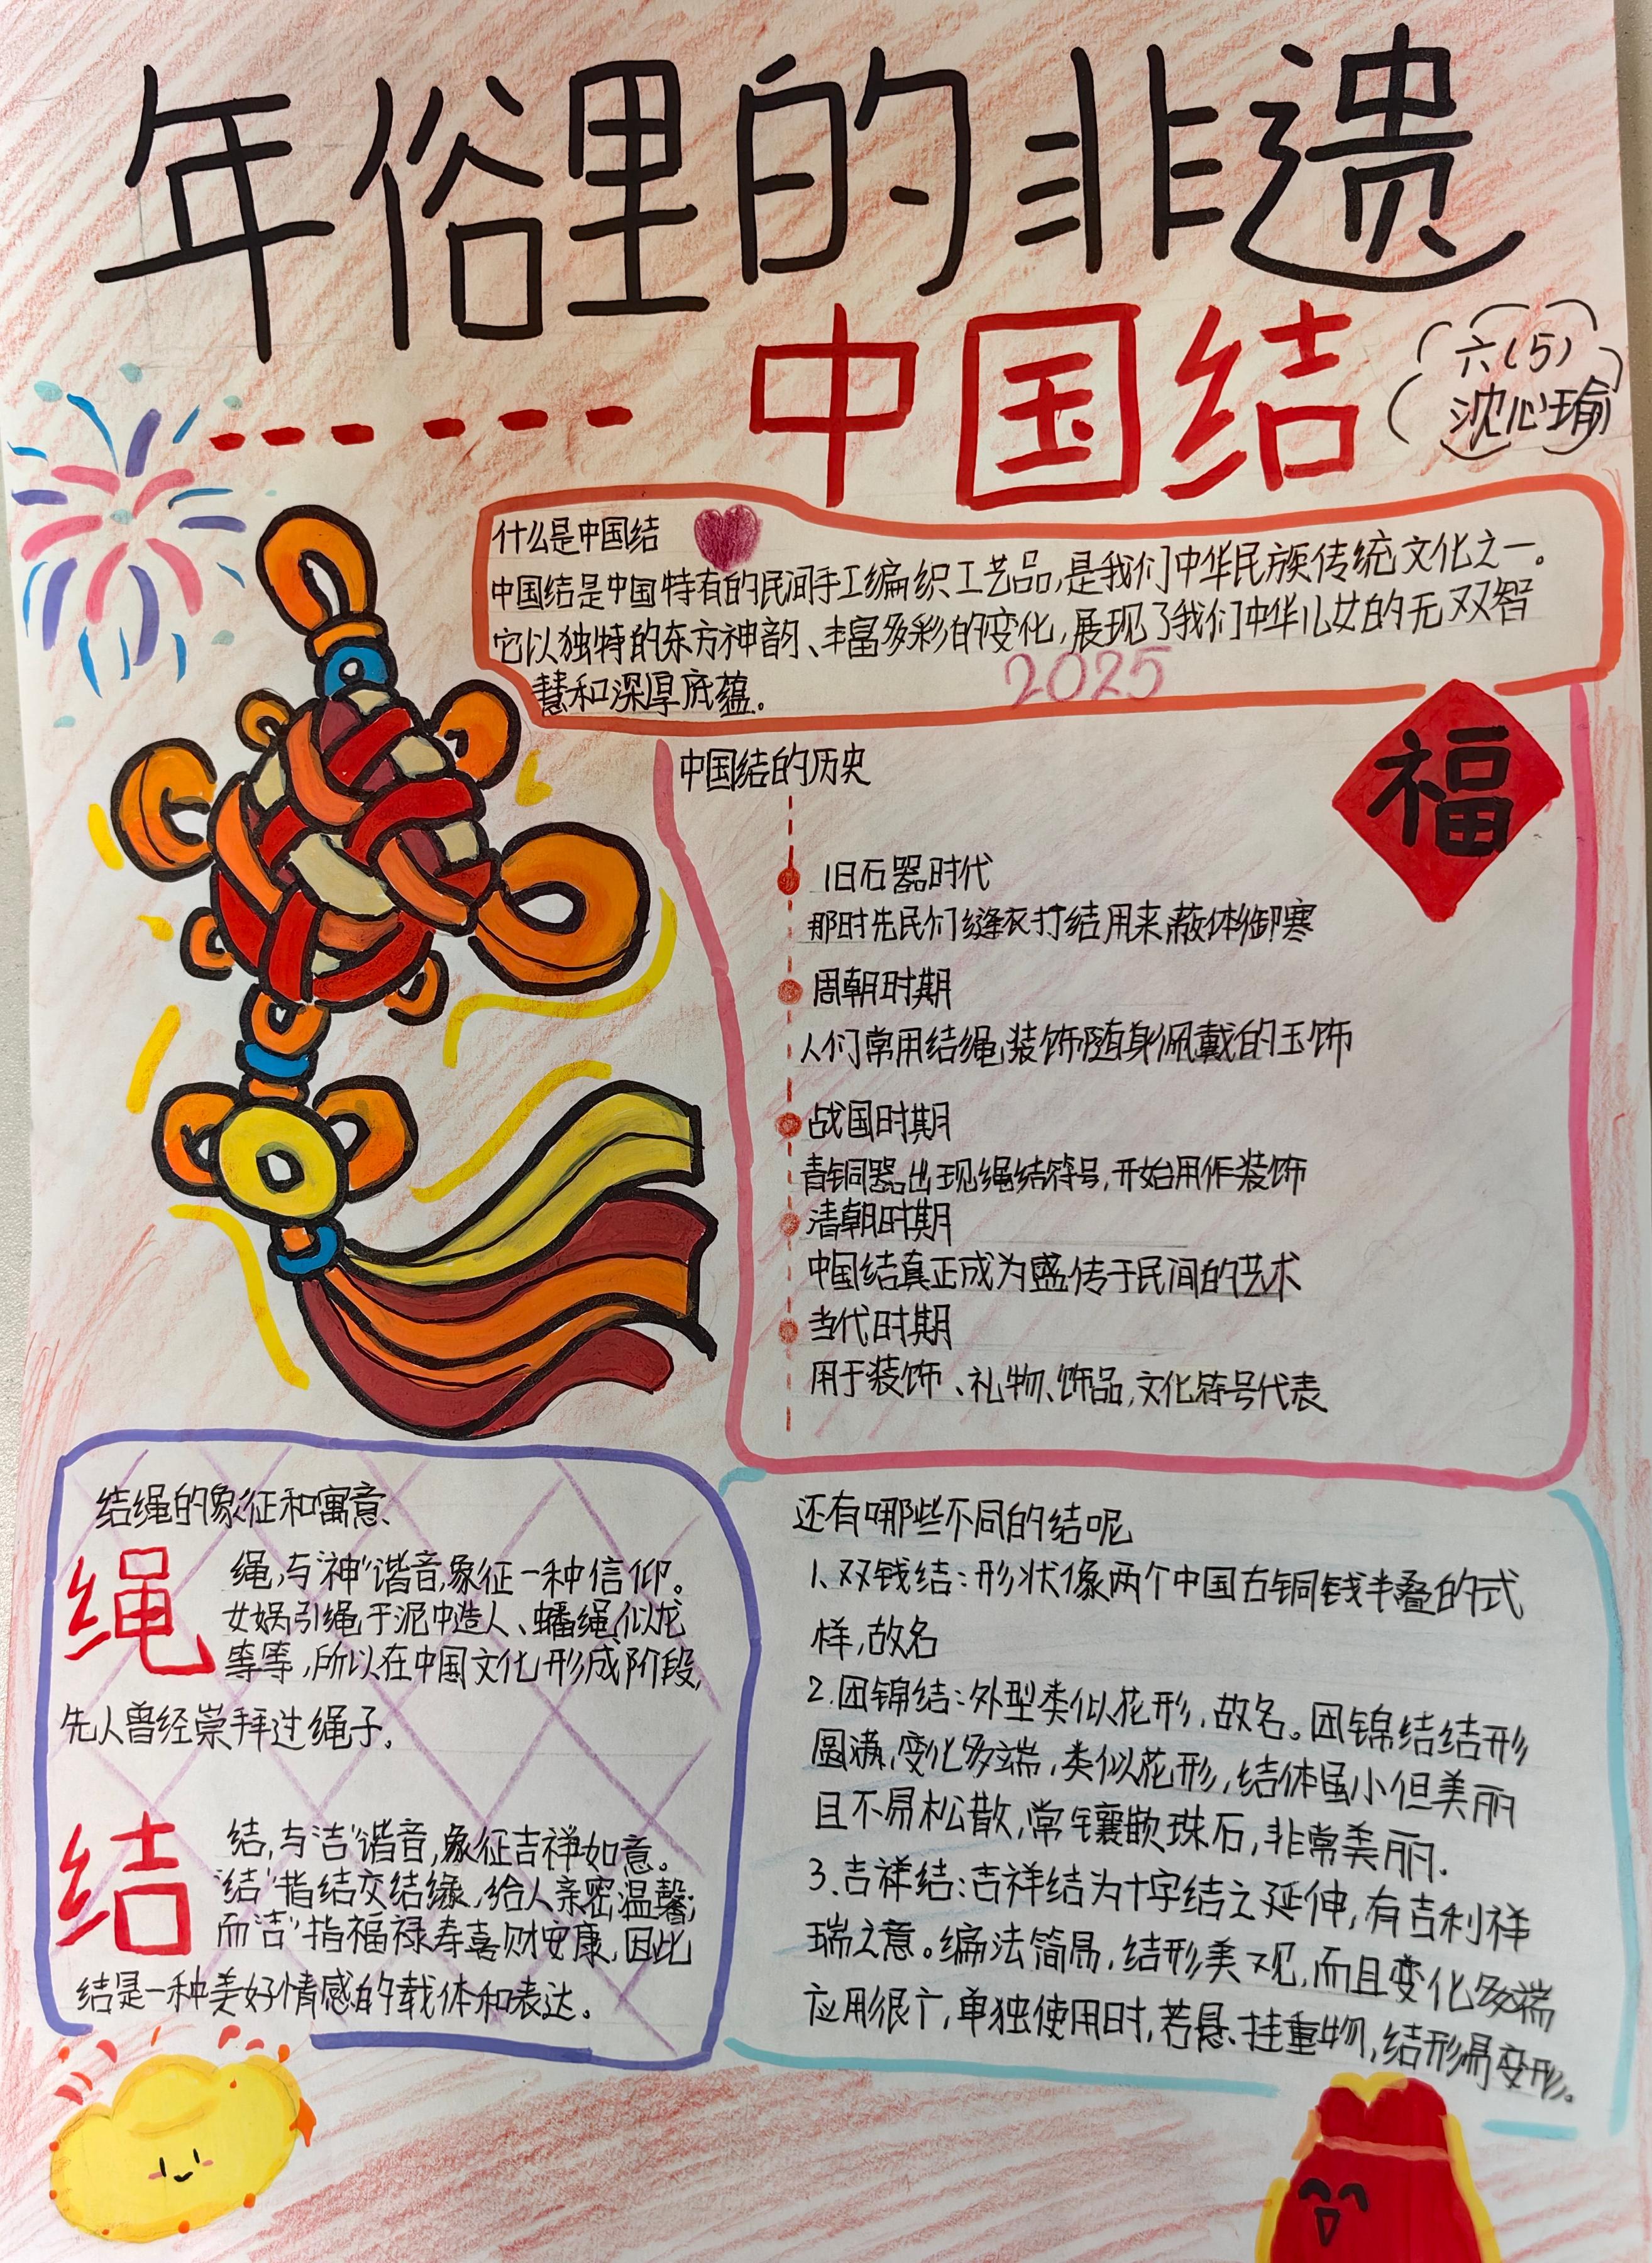 年俗里的非遗
中国结
六(5)
沈心瑜
什么是中国结
中国结是中国特有的民间手工编织工艺品,是我们中华民族传统文化之一。
它以独特的东方神韵、丰富多彩的变化,展现了我们中华儿女的无双智
慧和深厚底蕴。
2025
福
中国结的历史
旧石器时代
那时先民们缝衣打结用来蔽体御寒
周朝时期
人们常用结绳装饰随身佩戴的玉饰
战国时期
青铜器出现绳结符号,开始用作装饰
清朝时期
中国结真正成为盛传于民间的艺术
当代时期
用于装饰、礼物、饰品,文化符号代表
结绳的象征和寓意
绳
绳,与“神”谐音,象征一种信仰。
女娲引绳于泥中造人、蟠绳似龙
等等,所以在中国文化形成阶段,
先人曾经崇拜过绳子.
结
结,与“洁”谐音,象征吉祥如意。
“结”指结交结缘,给人亲密,温馨;
而“洁”指福禄寿喜财安康,因此
结是一种美好情感的载体和表达。
还有哪些不同的结呢
1、双钱结:形状像两个中国古铜钱半叠的式
样,故名
2.团锦结:外型类似花形,故名。团锦结结形
圆满,变化多端,类似花形,结体虽小但美丽
且不易松散,常镶嵌珠石,非常美丽.
3.吉祥结:吉祥结为十字结之延伸,有吉利祥
瑞之意。编法简易,结形美观,而且变化多端
应用很广,单独使用时,若悬挂重物,结形易变形。